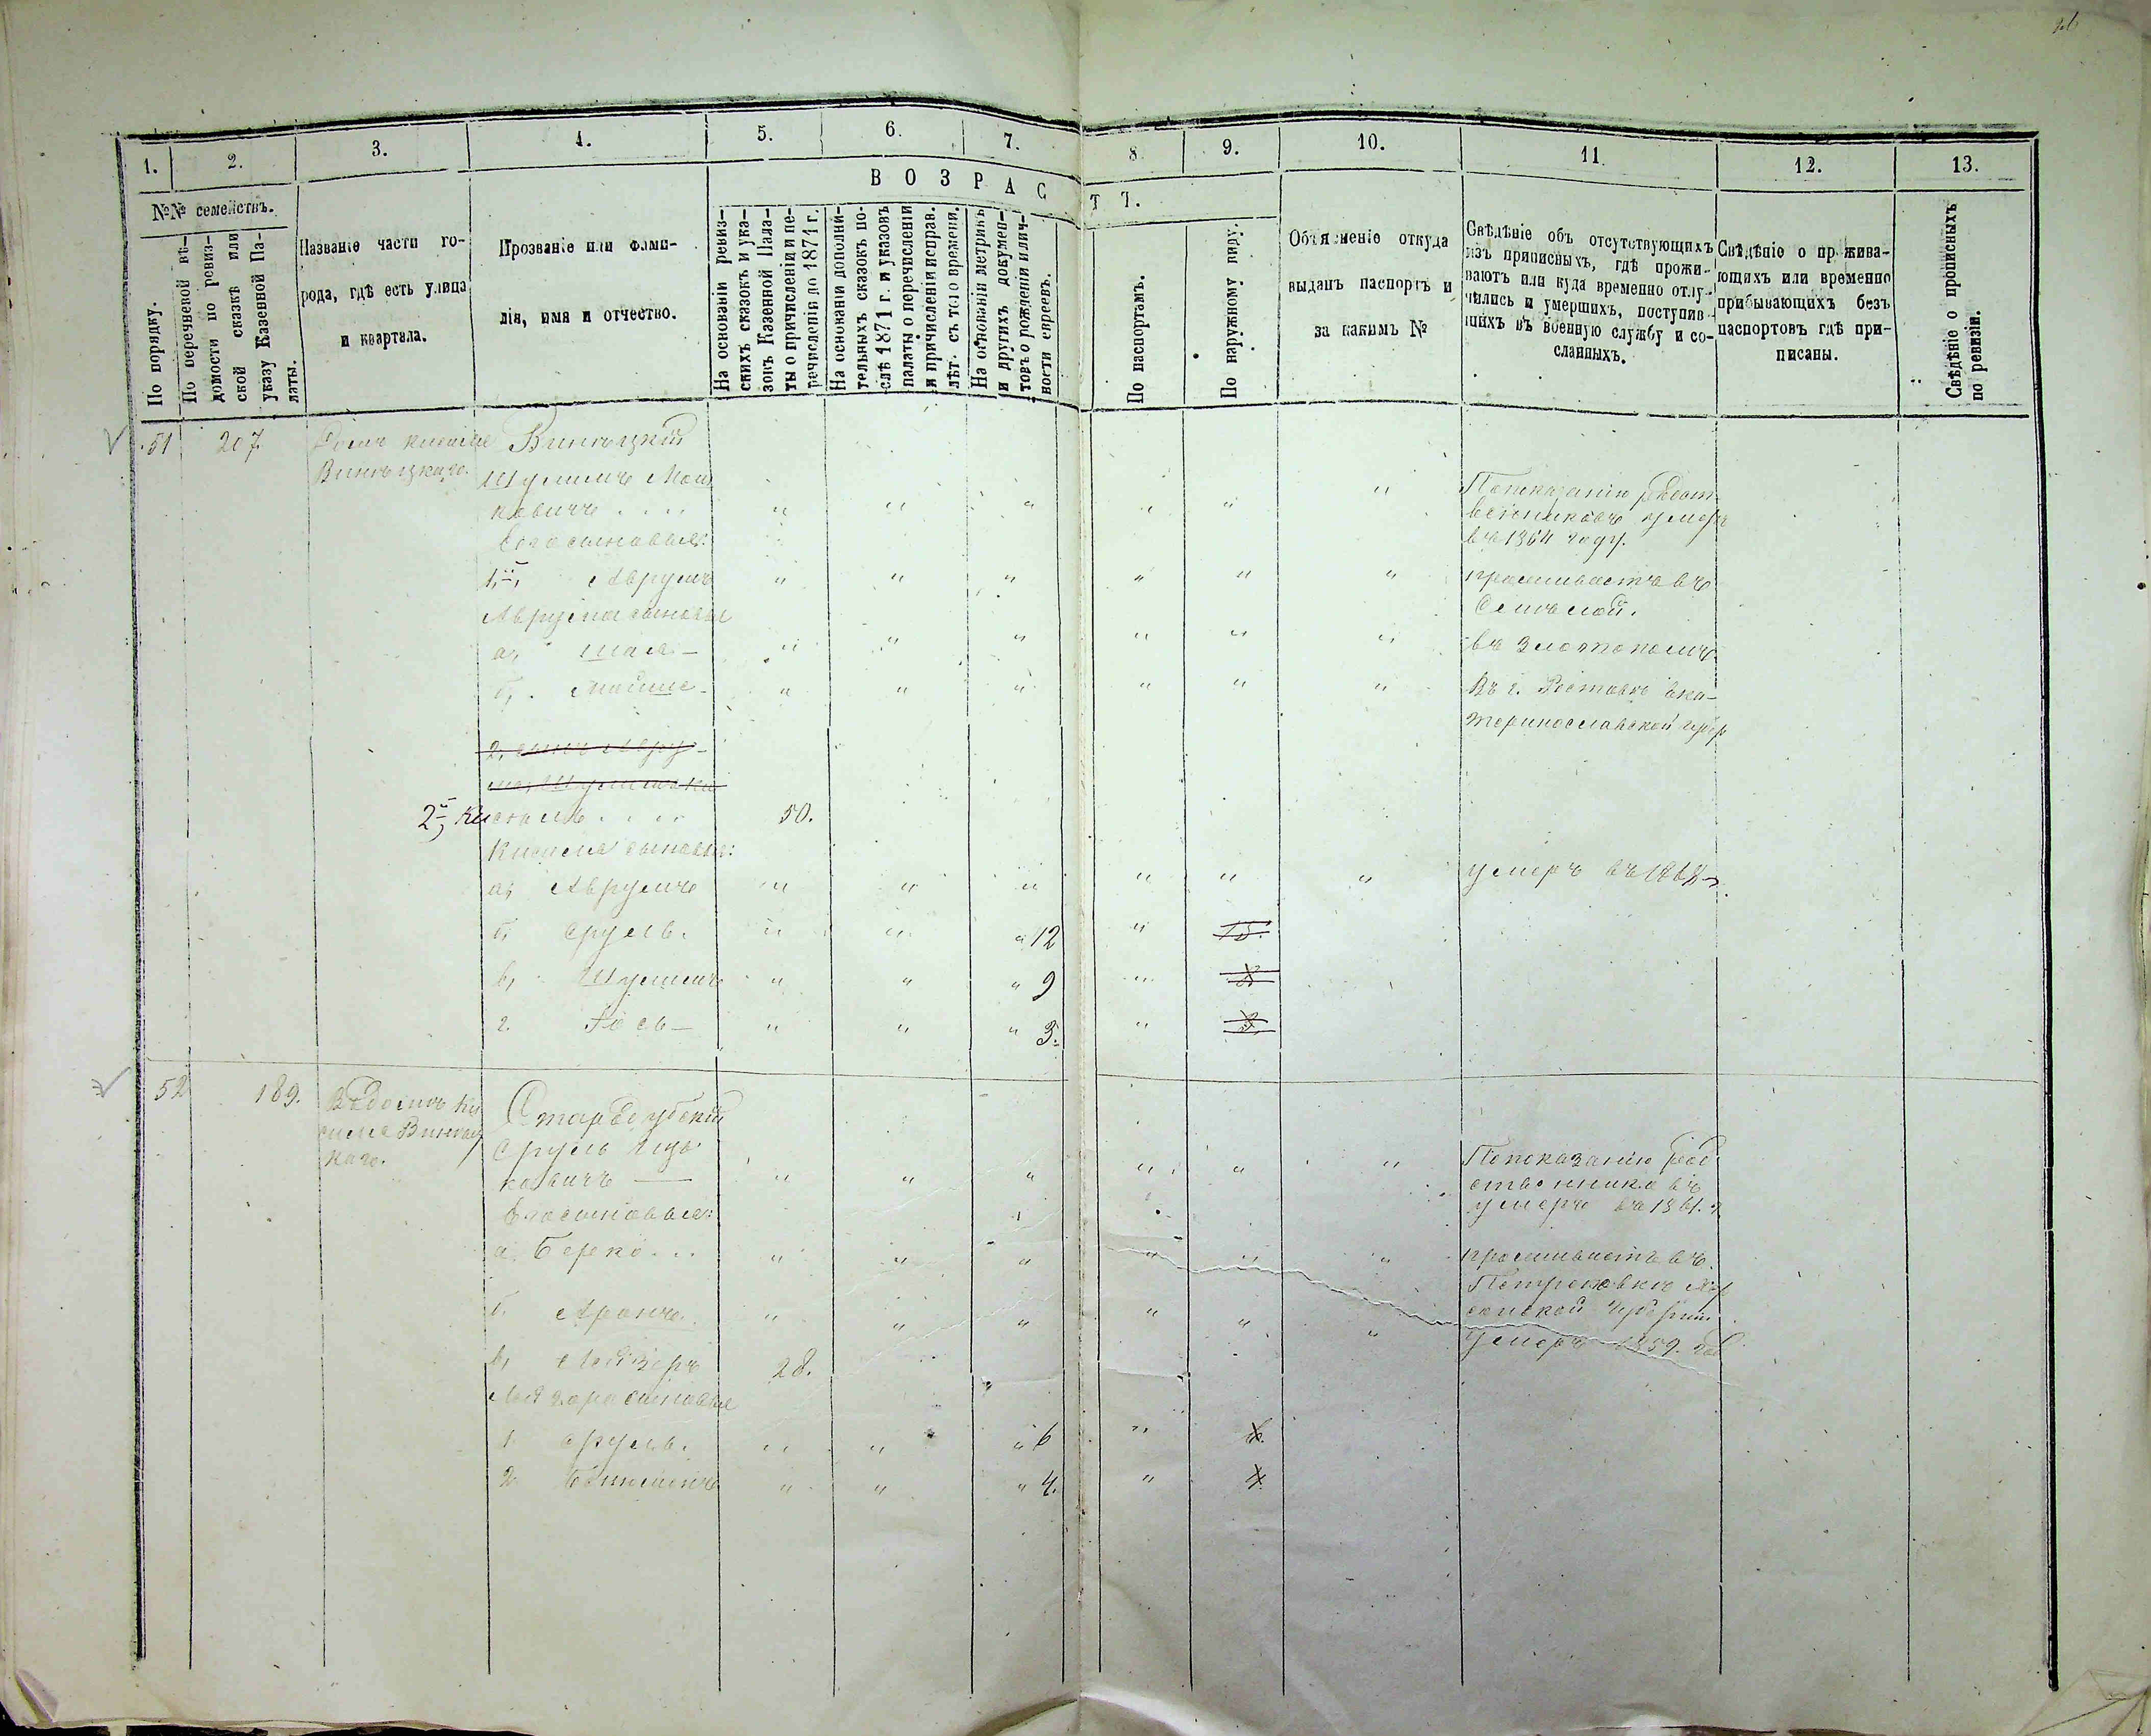 1.
2.
3.
4.
5.
6.
7.
8
9.
10.
11.
12.
13.
ВОЗРАС
ТЪ.
№№ семействъ.
По порядку.
По перечневой вѣ-
домости по ревиз-
ской сказкѣ или
указу Казенной Па-
латы.
Названіе части го-
рода, гдѣ есть улица
и квартала.
Прозваніе или фами-
лія, имя и отчество.
На основаніи ревиз-
скихъ сказокъ и ука-
зовъ Казенной Пала-
ты о причисленіи и пе-
речисленіи до 1871 г.
На основаніи дополни-
тельныхъ сказокъ по-
слѣ 1871 г. и указовъ
палаты о перечисленіи
и причисленіи и исправ.
лѣт. съ того времени.
На основаніи метрикъ
и другихъ докумен-
товъ о рожденіи и лич-
ности евреевъ.
По паспортамъ.
По наружному виду.
Объясненіе откуда
выданъ паспортъ и
за какимъ №
Свѣдѣніе объ отсутствующихъ
изъ приписныхъ, гдѣ прожи-
ваютъ или куда временно отлу-
чились и умершихъ, поступив-
шихъ въ военную службу и со-
сланныхъ.
Свѣдѣніе о прожива-
ющихъ или временно
прибывающихъ безъ
паспортовъ гдѣ при-
писаны.
Свѣдѣніе о прописныхъ
по ревизіи.
51 207. Домъ Кисиля Виницкій
Виницкаго.
Шулимъ Мош
ковичъ . . . . " " " " " " По показанію родст
венниковъ умеръ
въ 1864 году.
Его сыновья:
1й, Аврумъ " " " " " " проживаетъ въ
Авруma сыновья
а, " " " " " "
въ Златополѣ.
б, " " " " " " Въ г. Ростовѣ Ека-
теринославской губер
2й, Кисиль . . . . 50.
Кисиля сыновья:
а, Аврумъ " " " " " " умеръ въ 1868 г.
б, Сруль. " " " 12 " 15.
в, Шулимъ " " " 9 "
г. " " " 3. " 3.
52 189. Въ домѣ Ки
силя Виницкаго.
Стародубскій
Сруль Ицъ
ковичъ — " " " " " " По показанію род
ственниковъ
умеръ въ 1861. г.
Его сыновья:
а, Берко . . . " " " " " " проживаетъ въ
Петровкѣ Хер
сонской губерніи
б. Аронъ. " " " " " " умеръ 1859. год
в, Лейзеръ 28.
Лейзера сыновья
1 Сруль. " " " 6 " 6.
2 " " " 4. " 4